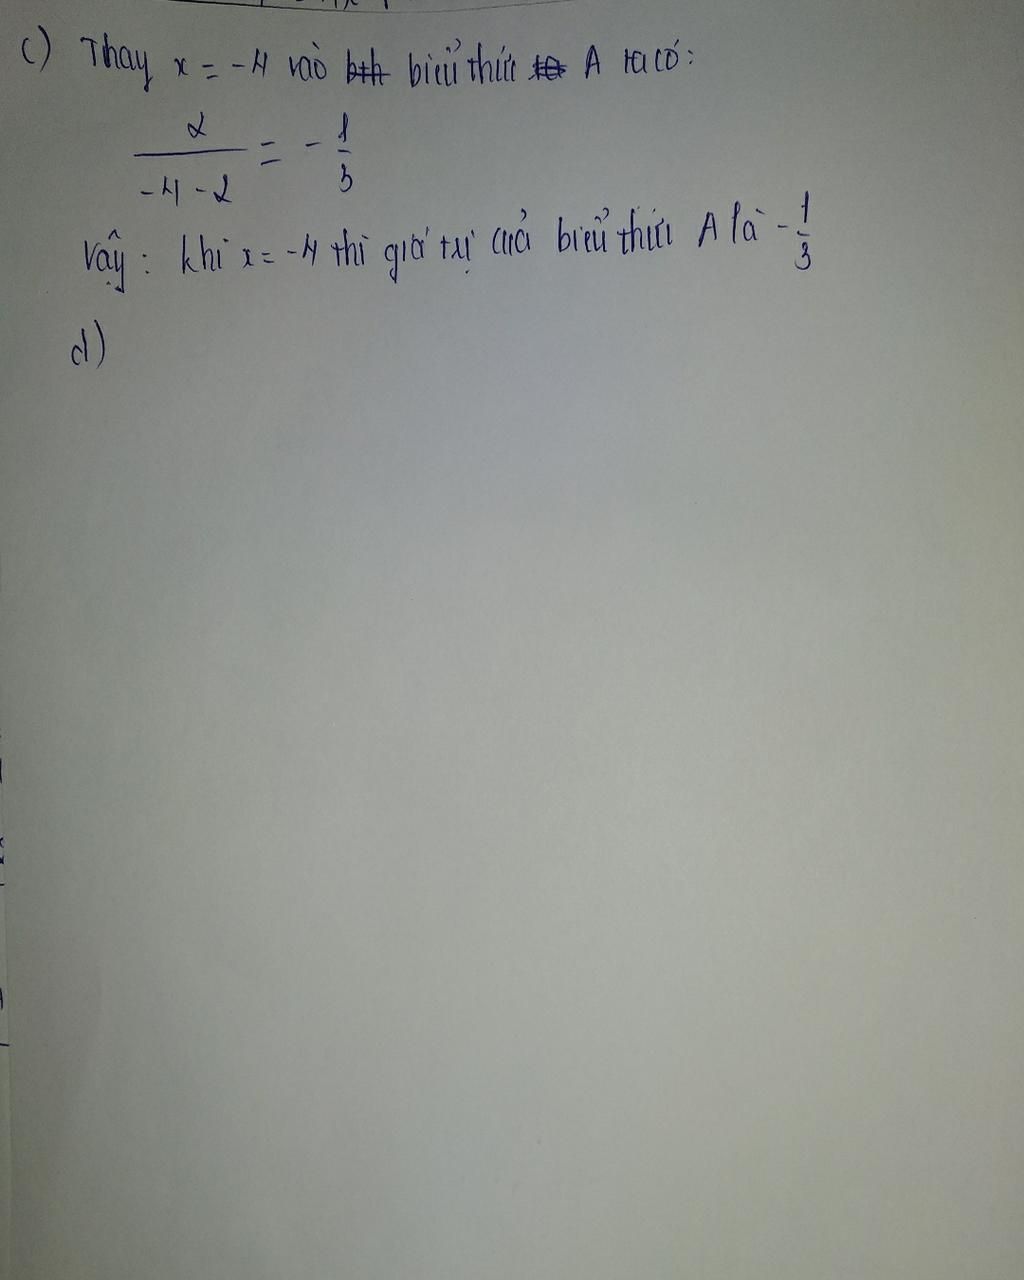 c) Thay x = -4 vào biểu thức A ta có:
2/(-4-2) = -1/3
Vậy: khi x = -4 thì giá trị của biểu thức A là -1/3
d)